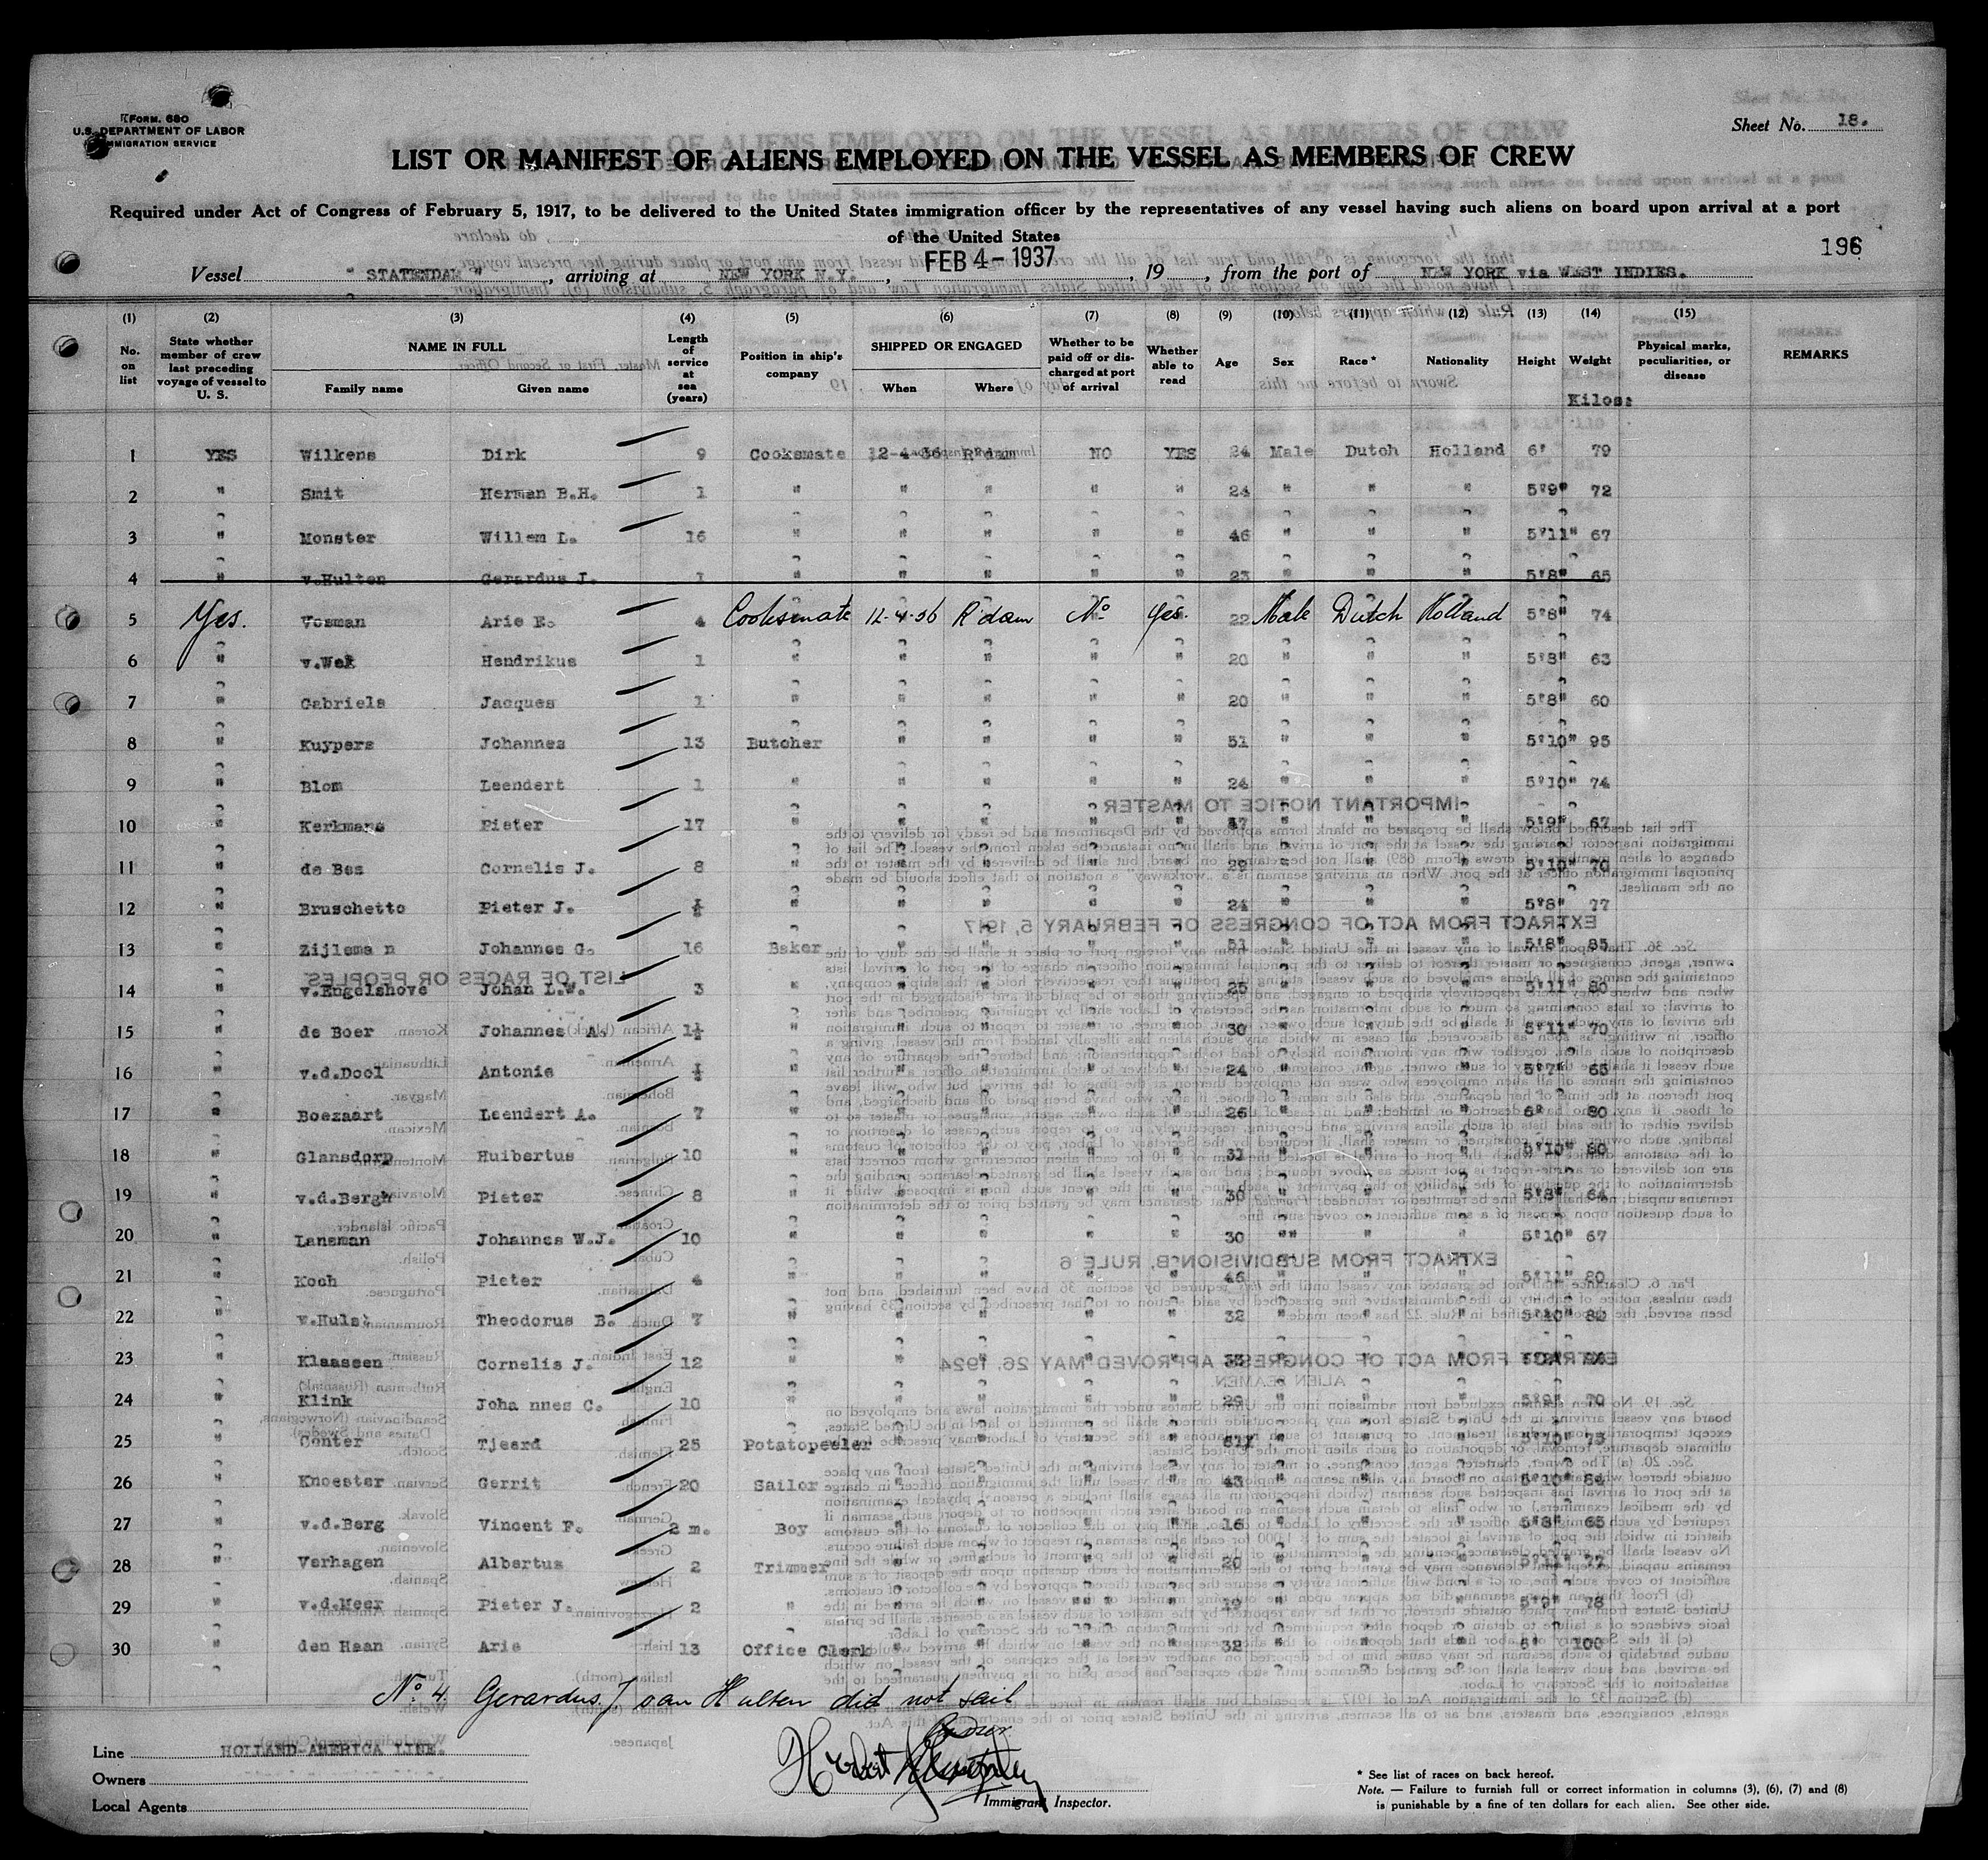 FORM. 680
U.S. DEPARTMENT OF LABOR
IMMIGRATION SERVICE
Sheet No. 18.
LIST OR MANIFEST OF ALIENS EMPLOYED ON THE VESSEL AS MEMBERS OF CREW
Required under Act of Congress of February 5, 1917, to be delivered to the United States immigration officer by the representatives of any vessel having such aliens on board upon arrival at a port
of the United States
196
Vessel " STATENDAM ", arriving at NEW YORK N.Y., FEB 4 - 1937, 19 , from the port of NEW YORK via WEST INDIES.
(1) (2) (3) (4) (5) (6) (7) (8) (9) (10) (11) (12) (13) (14) (15)
No. on list State whether member of crew last preceding voyage of vessel to U. S. NAME IN FULL Family name Given name Length of service at sea (years) Position in ship's company SHIPPED OR ENGAGED When Where Whether to be paid off or discharged at port of arrival Whether able to read Age Sex Race* Nationality Height Weight Physical marks, peculiarities, or disease REMARKS
Kilos:
1 YES Wilkens Dirk 9 Cooksmate 12-4-36 R'dam NO YES 24 Male Dutch Holland 6' 79
2 " Smit Herman B.H. 1 " " " " " 24 " " " 5'9" 72
3 " Monster Willem L. 16 " " " " " 46 " " " 5'11" 67
4 " v.Hulten Gerardus J. 1 " " " " " 23 " " " 5'8" 65
5 Yes. Vosman Arie E. 4 Cooksmate 12-4-36 R'dam No Yes. 22 Male Dutch Holland 5'8" 74
6 " v.Wek Hendrikus 1 " " " " " 20 " " " 5'8" 63
7 " Gabriels Jacques 1 " " " " " 20 " " " 5'8" 60
8 " Kuypers Johannes 13 Butcher " " " " 51 " " " 5'10" 95
9 " Blom Leendert 1 " " " " " 24 " " " 5'10" 74
10 " Kerkmans Pieter 17 " " " " " 47 " " " 5'9" 67
11 " de Bes Cornelis J. 8 " " " " " 29 " " " 5'10" 70
12 " Bruschetto Pieter J. ½ " " " " " 24 " " " 5'8" 77
13 " Zijlema n Johannes G. 16 Baker " " " " 51 " " " 5'8" 85
14 " v.Engelshove Johan L.W. 3 " " " " " 25 " " " 5'11" 80
15 " de Boer Johannes A. 1½ " " " " " 30 " " " 5'11" 70
16 " v.d.Dool Antonie ½ " " " " " 24 " " " 5'7" 65
17 " Boezaart Leendert A. 7 " " " " " 26 " " " 6' 80
18 " Glansdorp Huibertus 10 " " " " " 31 " " " 5'10" 80
19 " v.d.Bergh Pieter 8 " " " " " 30 " " " 5'8" 64
20 " Lansman Johannes W.J. 10 " " " " " 30 " " " 5'10" 67
21 " Koch Pieter 4 " " " " " 46 " " " 5'11" 80
22 " v.Hulst Theodorus B. 7 " " " " " 32 " " " 5'10" 82
23 " Klaassen Cornelis J. 12 " " " " " " " "
24 " Klink Joha nnes C. 10 " " " " " 29 " " " 5'9" 70
25 " Conter Tjeerd 25 Potatopeeler " " " " " " " 5'10" 75
26 " Knoester Gerrit 20 Sailor " " " " 43 " " " 5'10" 84
27 " v.d.Berg Vincent F. 2 m. Boy " " " " 16 " " " 5'8" 65
28 " Verhagen Albertus 2 Trimmer " " " " 20 " " " 5'11" 77
29 " v.d.Meer Pieter J. 2 " " " " " 19 " " " 5'9" 78
30 " den Haan Arie 13 Office Clerk " " " " 32 " " " 6' 100
No. 4. Gerardus J van Hulten did not sail
Line HOLLAND-AMERICA LINE.
Owners
Local Agents
Immigrant Inspector.
* See list of races on back hereof.
Note. — Failure to furnish full or correct information in columns (3), (6), (7) and (8)
is punishable by a fine of ten dollars for each alien. See other side.